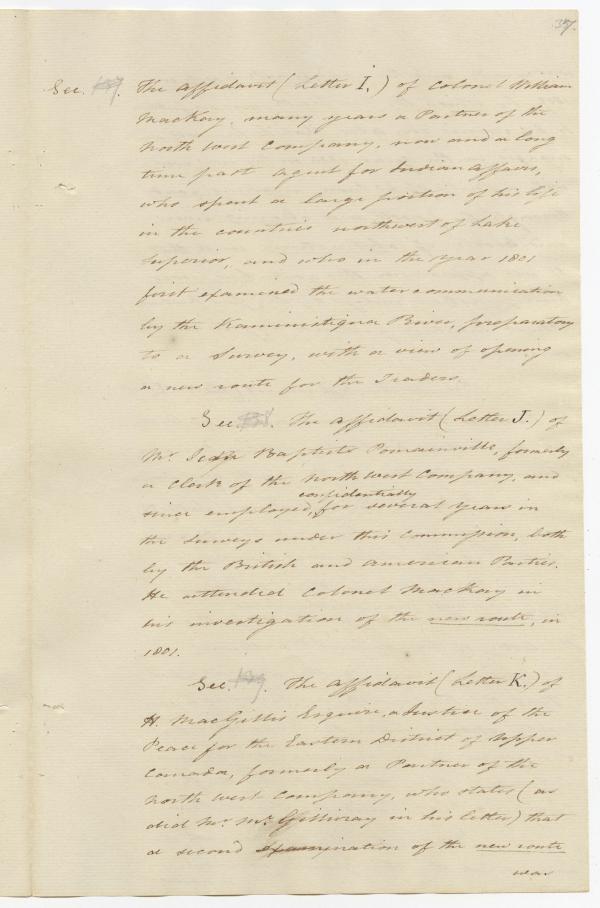 37.
See. 127. The affidavit (Letter I.) of Colonel William
MacKay, many years a Partner of the
North West Company, now and a long
time past agent for Indian affairs,
who spent a large portion of his life
in the countries northwest of Lake
Superior, and who in the year 1801
first examined the water communication
by the Kaministiqua River, preparatory
to a Survey, with a view of opening
a new route for the Traders.
See. 128. The affidavit (Letter J.) of
Mr. Jean Baptiste Pomainville, formerly
a Clerk of the North West Company, and
confidentially
since employed, for several years in
the Surveys under this Commission, both
by the British and American Parties.
He attended Colonel MacKay in
his investigation of the new route, in
1801.
See. 129. The affidavit (Letter K.) of
H. MacGillis Esquire, a Justice of the
Peace for the Eastern District of Upper
Canada, formerly a Partner of the
North West Company, who states (as
did Mr. McGillivray in his letter) that
a second examination of the new route
was